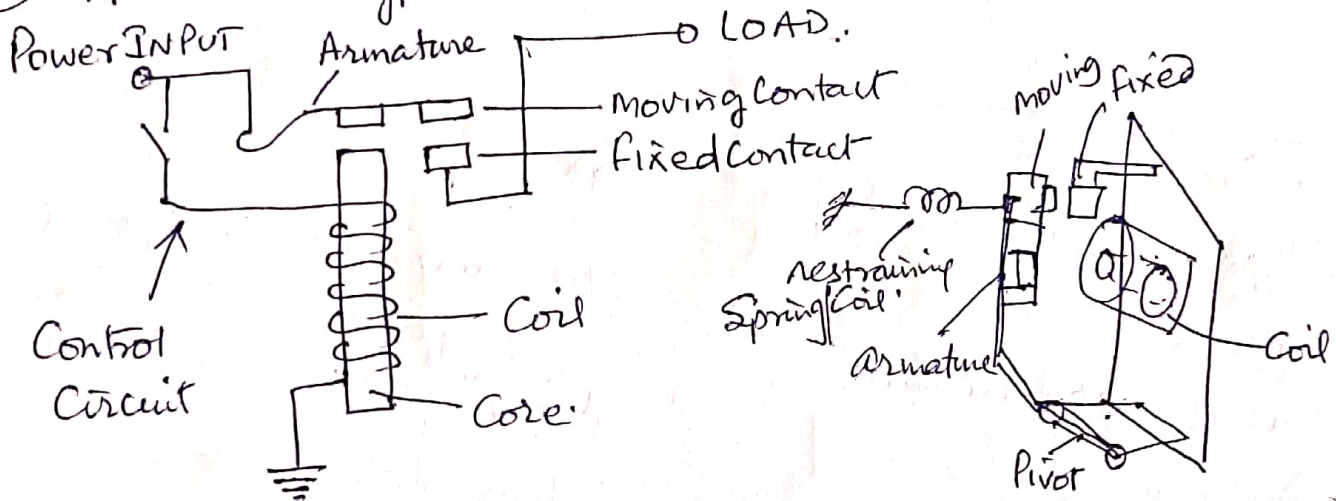 Power INPUT
Armature
LOAD..
Moving Contact
Fixed Contact
Control
Circuit
Coil
Core.
moving
fixed
restraining
Spring/Coil.
armature
Coil
Pivot